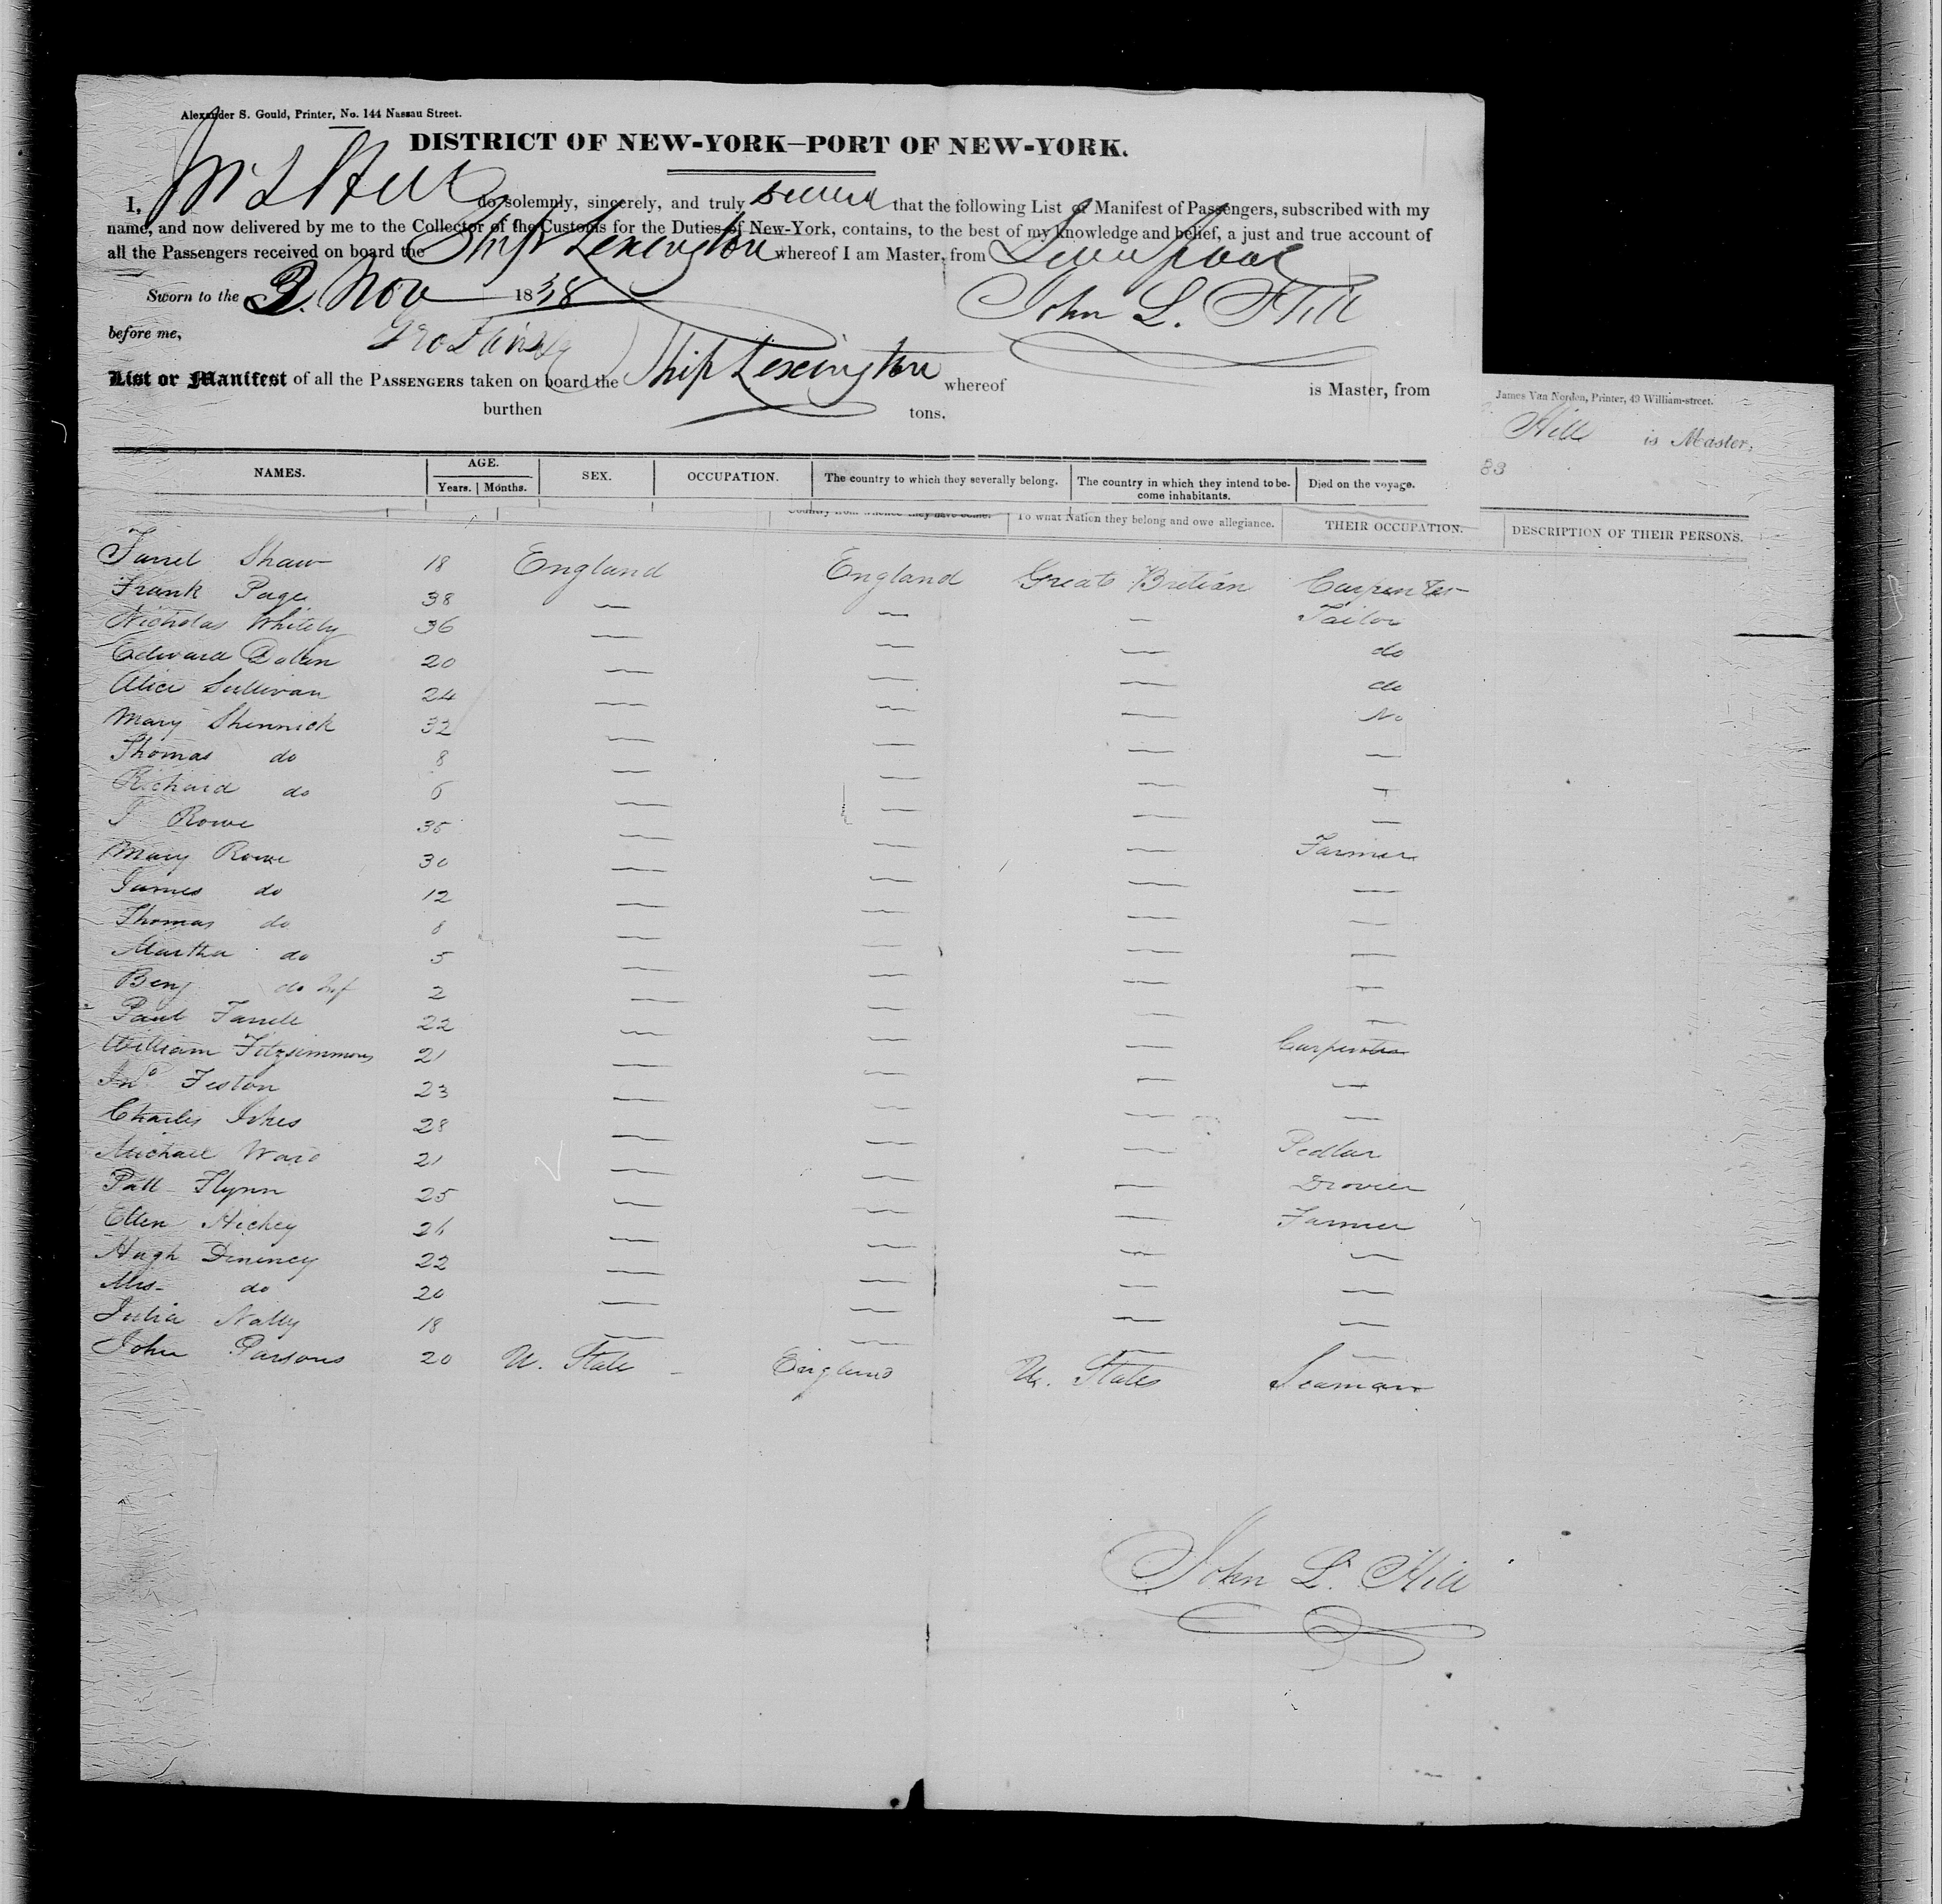 Alexander S. Gould, Printer, No. 144 Nassau Street.
DISTRICT OF NEW-YORK—PORT OF NEW-YORK.
I, Jn L Hill do solemnly, sincerely, and truly swear that the following List or Manifest of Passengers, subscribed with my
name, and now delivered by me to the Collector of the Customs for the Duties of New-York, contains, to the best of my knowledge and belief, a just and true account of
all the Passengers received on board the Ship Lexington whereof I am Master, from Liverpool
Sworn to the 3. Nov 1838 John L. Hill
before me,
List or Manifest of all the PASSENGERS taken on board the Ship Lexington whereof is Master, from
burthen tons.
James Van Norden, Printer, 49 William-street.
Hill is Master,
83
NAMES. AGE. Years. Months. SEX. OCCUPATION. The country to which they severally belong. The country in which they intend to become inhabitants. Died on the voyage.
Country from whence they have come. To what Nation they belong and owe allegiance. THEIR OCCUPATION. DESCRIPTION OF THEIR PERSONS.
Shaw 18 England England Great Britian Carpenter
Frank Page 38 — — — Tailor
Nicholas Whitely 36 — — — do
Edward 20 — — — do
Alice Sullivan 24 — — — No
Mary Shennick 32 — — — —
Thomas do 8 — — — —
Richard do 6 — — — —
J. Rowe 35 — — — Farmer
Mary Rowe 30 — — — —
James do 12 — — — —
Thomas do 8 — — — —
Martha do 5 — — — —
Benj do Inf 2 — — — —
Paul 22 — — — Carpenter
William Fitzsimmons 21 — — — —
Jno Feston 23 — — — —
Charles 28 — — — Pedlar
Michael Ward 21 — — — Drover
Patt Flynn 25 — — — Farmer
Ellen Hickey 21 — — — —
Hugh 22 — — — —
Mrs- do 20 — — — —
Julia Nally 18 — — — —
John Parsons 20 U. State England U. States Seaman
John L. Hill